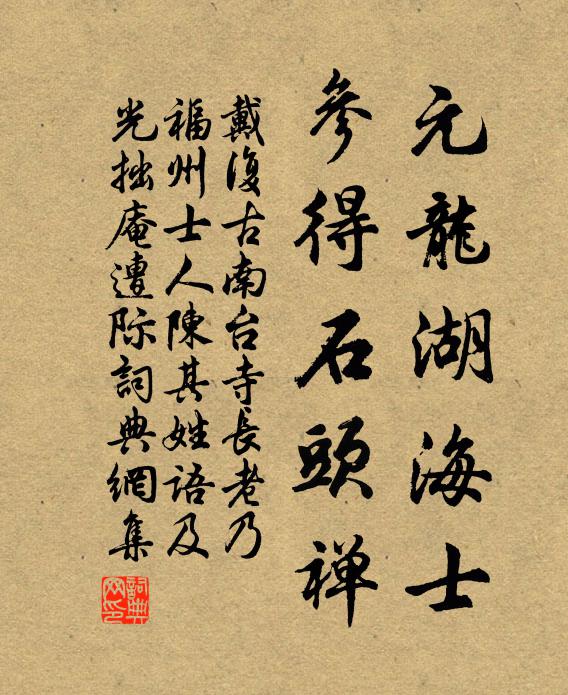 元龍湖海士
參得石頭禅
戴復古南台寺長老乃
福州士人陳其姓語及
光拙庵遭际詞典網集
詞典网印